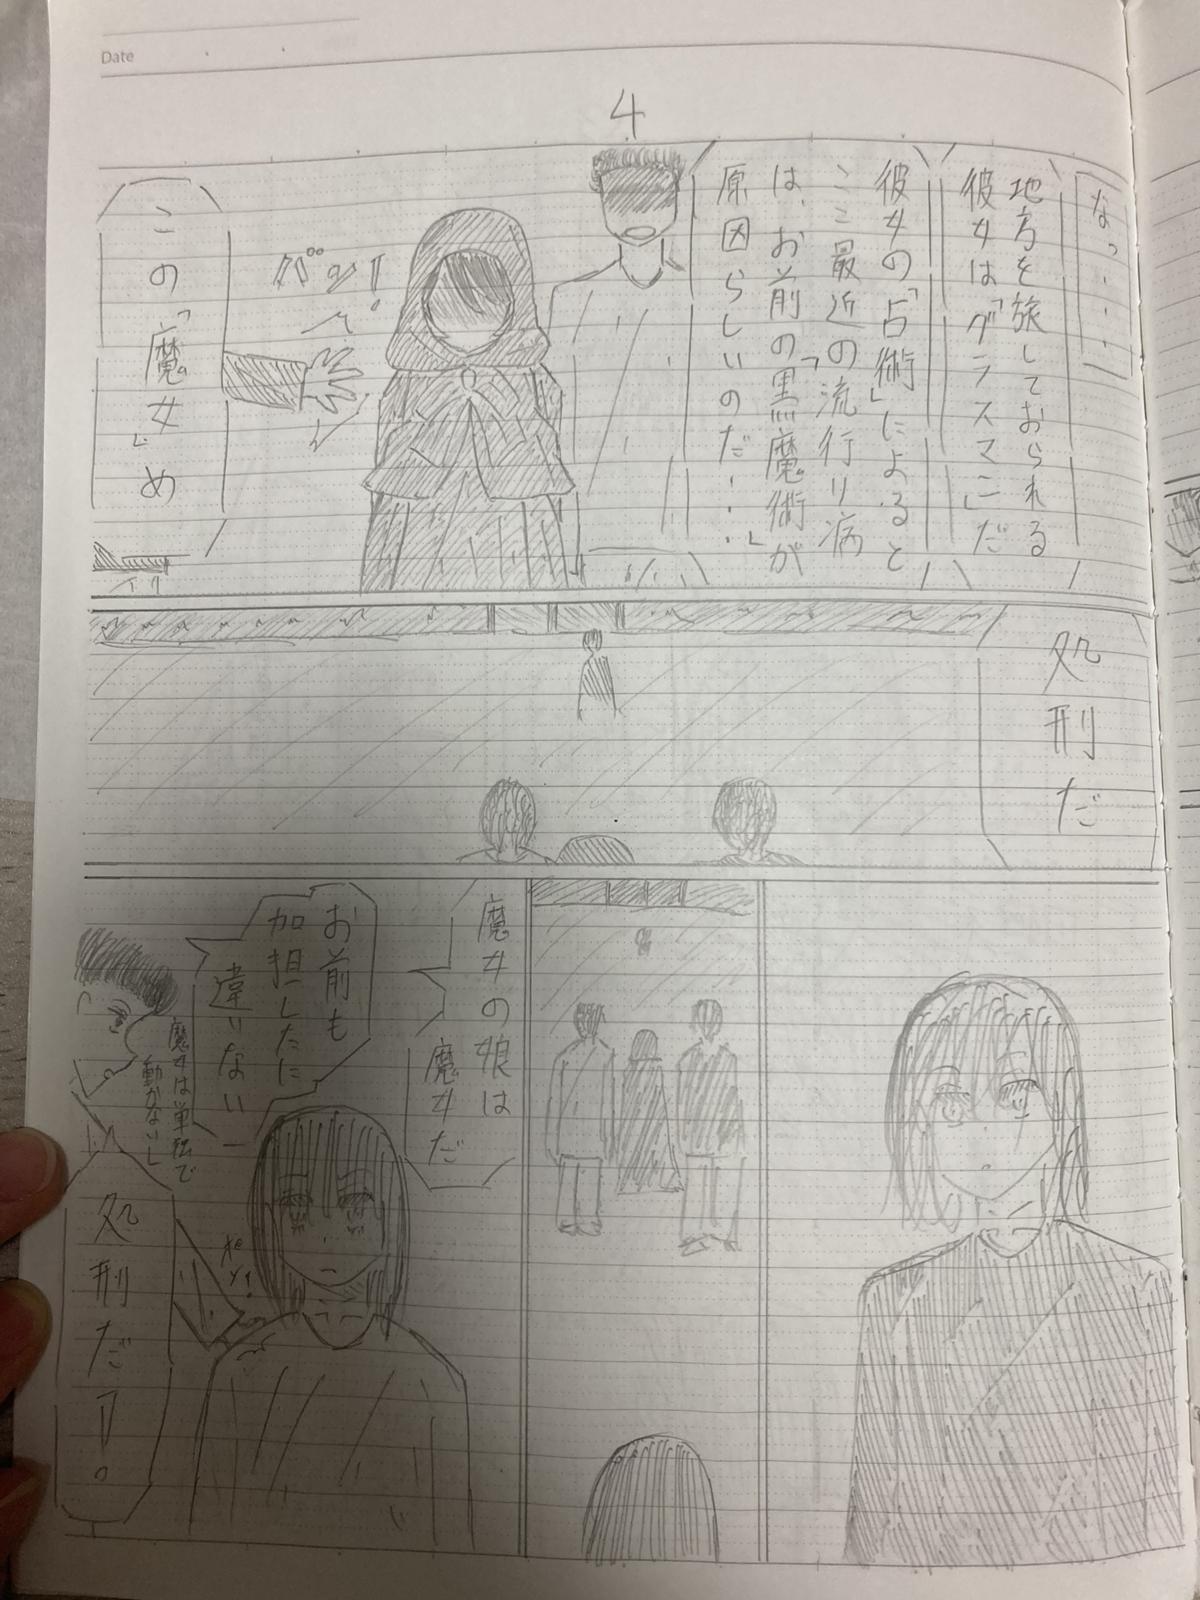 Date
4
なっ・・・・
地方を旅しておられる
彼女は「グラスマニ」だ
彼女の「占術」によると
ここ最近の流行り病
は、お前の「黒魔術」が
原因らしいのだ・・・
バッ!
この「魔女」め
処刑だ
魔女の娘は
魔女だ
お前も
加担したに
違いない
魔女は単独で
動かないし
処刑だァ。